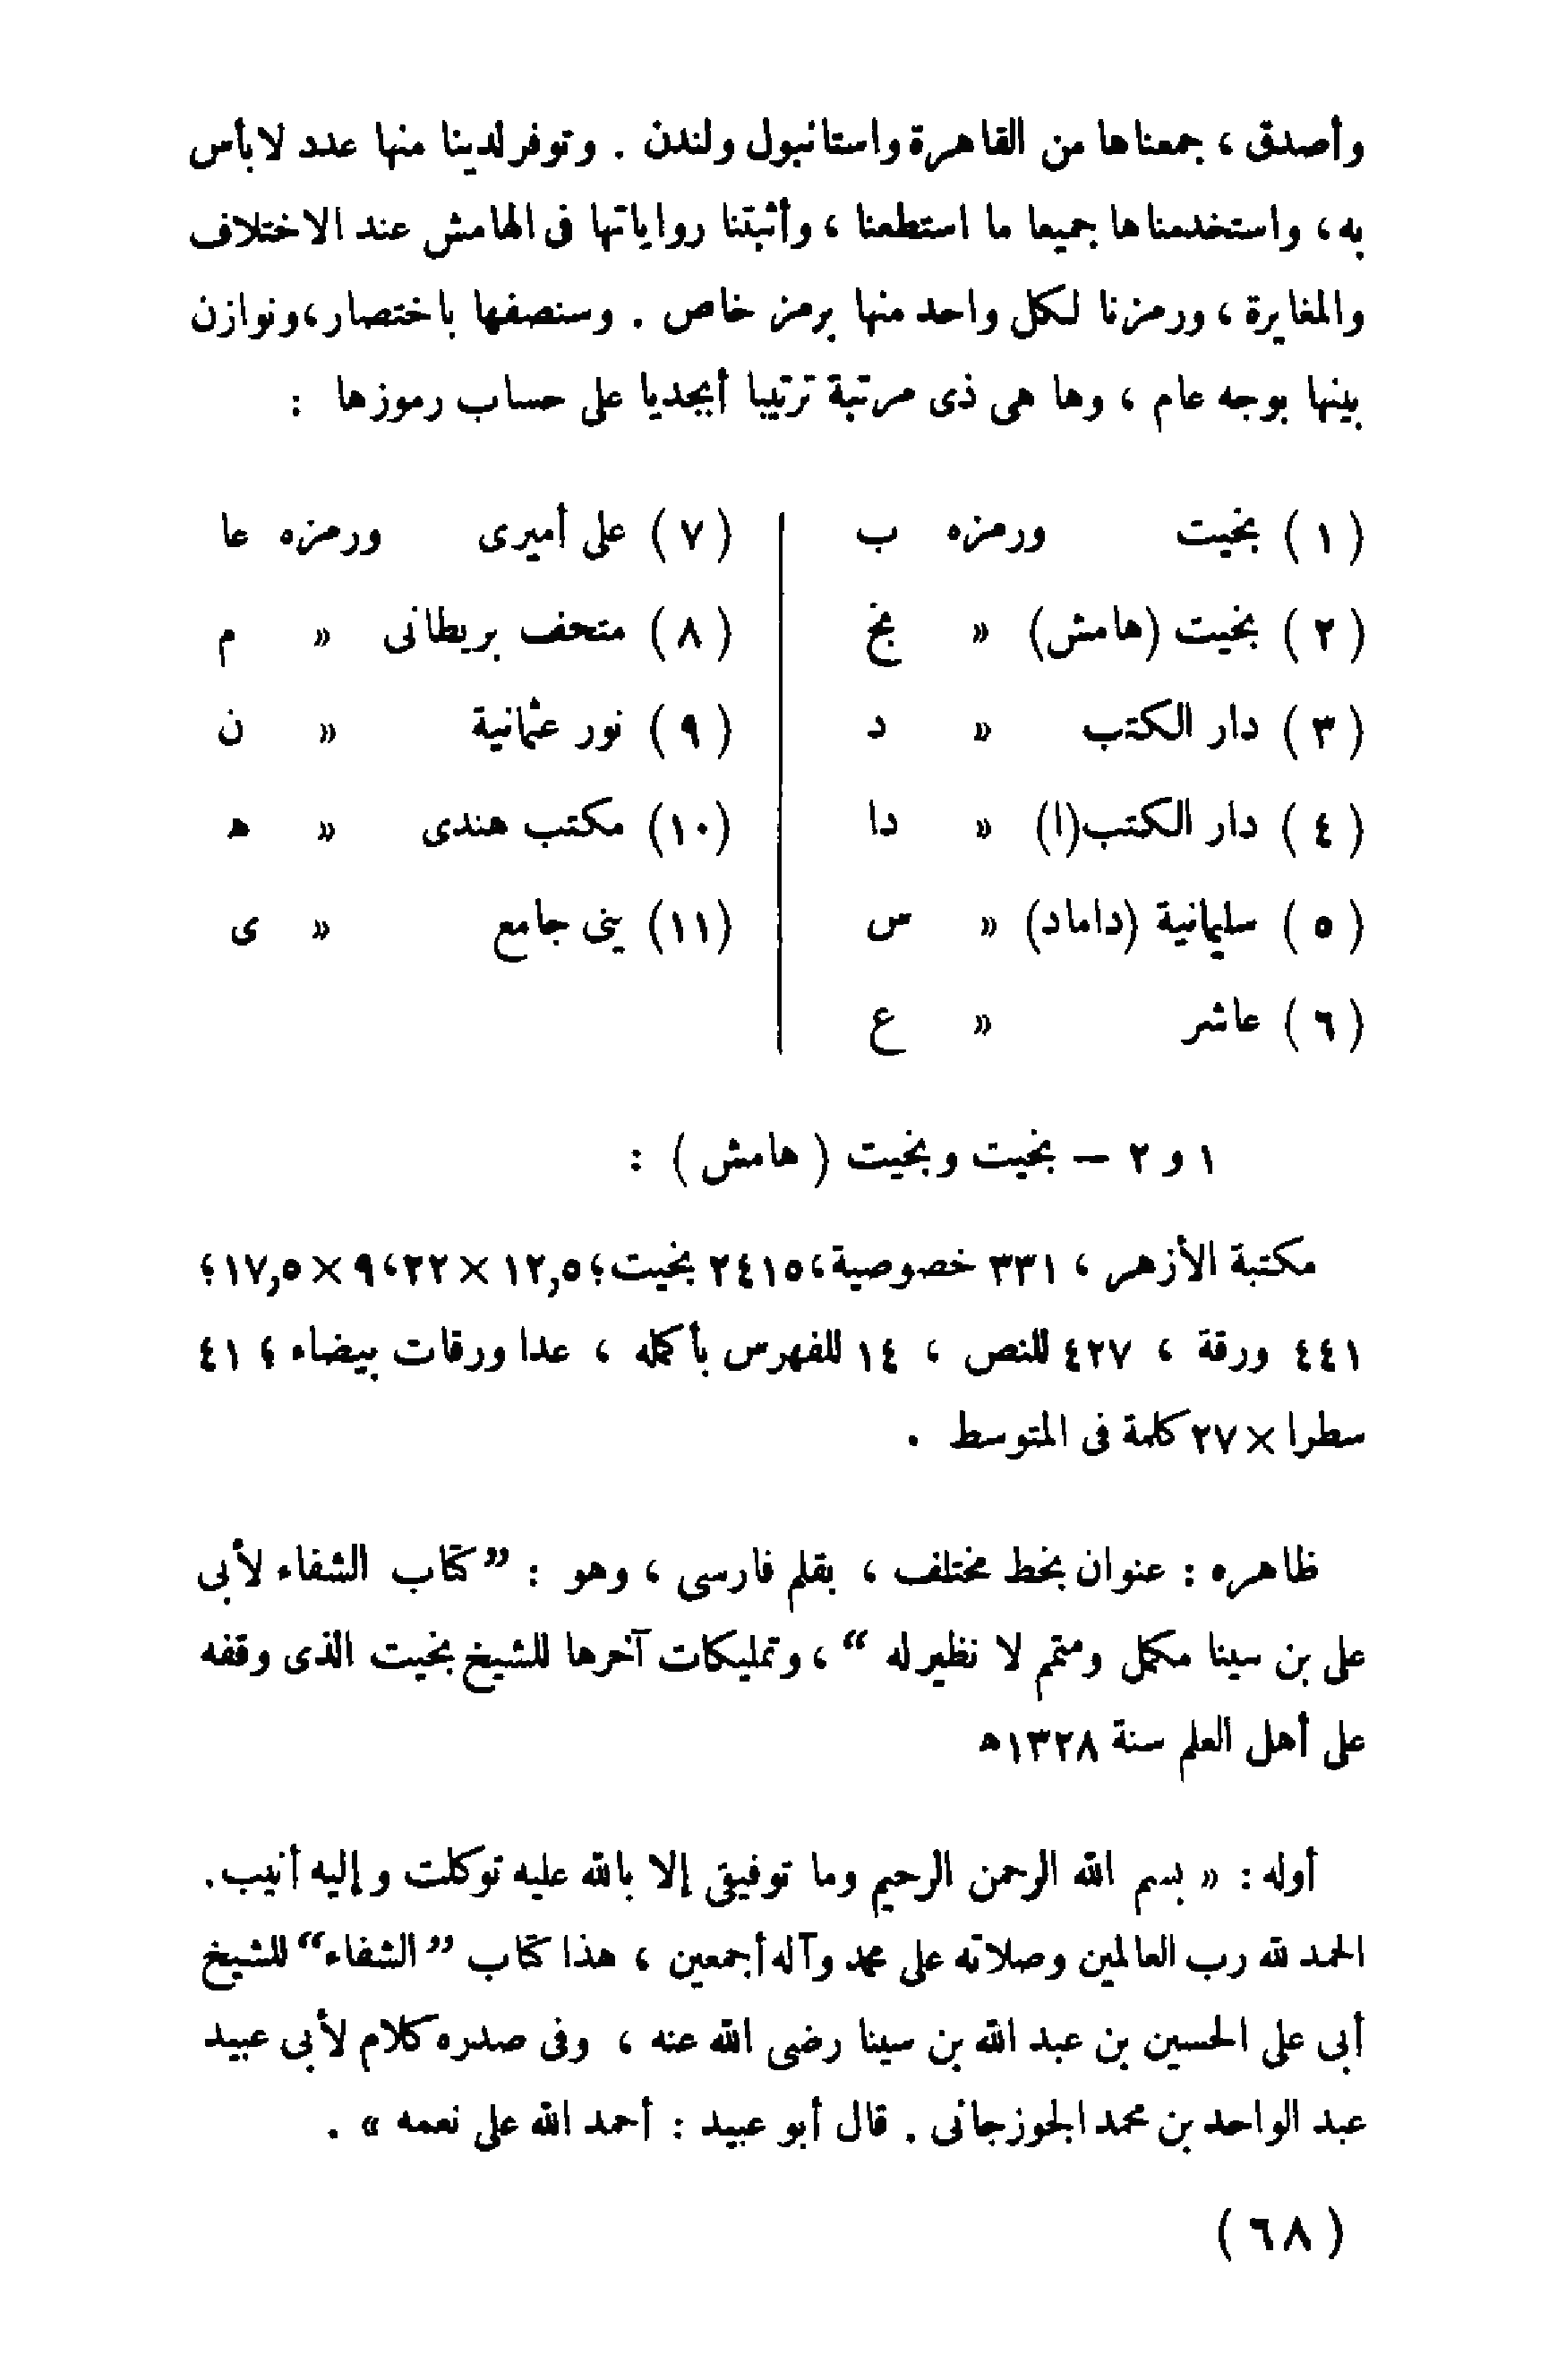 وأصدق ، جمعناها من القاهرة واستانبول ولندن . وتوفر لدينا منها عدد لا بأس
به ، واستخدمناها جميعا ما استطعنا ، وأثبتنا رواياتها فى الهامش عند الاختلاف
والمغايرة ، ورمزنا لكل واحد منها برمز خاص . وسنصفها باختصار ، ونوازن
بينها بوجه عام ، وها هى ذى مرتبة ترتيبا أبجديا على حساب رموزها :
( ١ ) بخيت ورمزه ب
( ٢ ) بخيت (هامش) » بخ
( ٣ ) دار الكتب » د
( ٤ ) دار الكتب (ا) » دا
( ٥ ) سليمانية (داماد) » س
( ٦ ) عاشر » ع
( ٧ ) على أميرى ورمزه عا
( ٨ ) متحف بريطانى » م
( ٩ ) نور عثمانية » ن
(١٠) مكتب هندى » ه
(١١) ينى جامع » ى
١ و ٢ — بخيت وبخيت ( هامش ) :
مكتبة الأزهر ، ٣٣١ خصوصية ، ٢٤١٥ بخيت ؛ ١٢,٥ × ٢٢ ، ٩ × ١٧,٥ ؛
٤٤١ ورقة ، ٤٢٧ للنص ، ١٤ للفهرس بأكمله ، عدا ورقات بيضاء ؛ ٤١
سطرا × ٢٧ كلمة فى المتوسط .
ظاهره : عنوان بخط مختلف ، بقلم فارسى ، وهو : ”كتاب الشفاء لأبى
على بن سينا مكمل ومتمم لا نظير له “ ، وتمليكات آخرها للشيخ بخيت الذى وقفه
على أهل العلم سنة ١٣٢٨ه
أوله : « بسم الله الرحمن الرحيم وما توفيقى إلا بالله عليه توكلت وإليه أنيب .
الحمد لله رب العالمين وصلاته على محمد وآله أجمعين ، هذا كتاب ”الشفاء“ للشيخ
أبى على الحسين بن عبد الله بن سينا رضى الله عنه ، وفى صدره كلام لأبى عبيد
عبد الواحد بن محمد الجوزجانى . قال أبو عبيد : أحمد الله على نعمه » .
( ٦٨ )